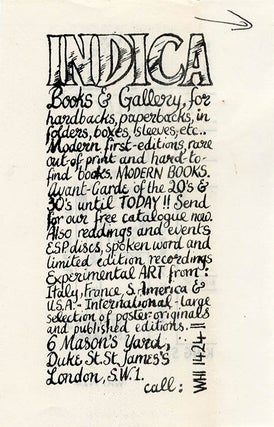 INDICA
Books & Gallery, for
hardbacks, paperbacks, in
folders, boxes, sleeves, etc..
Modern first-editions, rare
out-of-print and hard-to-
find books. MODERN BOOKS.
Avant-Garde of the 20's &
30's until TODAY!! Send
for our free catalogue now.
Also readings and events
ESP. discs, spoken word and
limited edition recordings
Experimental ART from:
Italy, France, S. America &
U.S.A - International - large
selection of poster-originals
and published editions.
6 Mason's Yard,
Duke St. St. James's
London, S.W.1.
call:
WHI 1424 !!